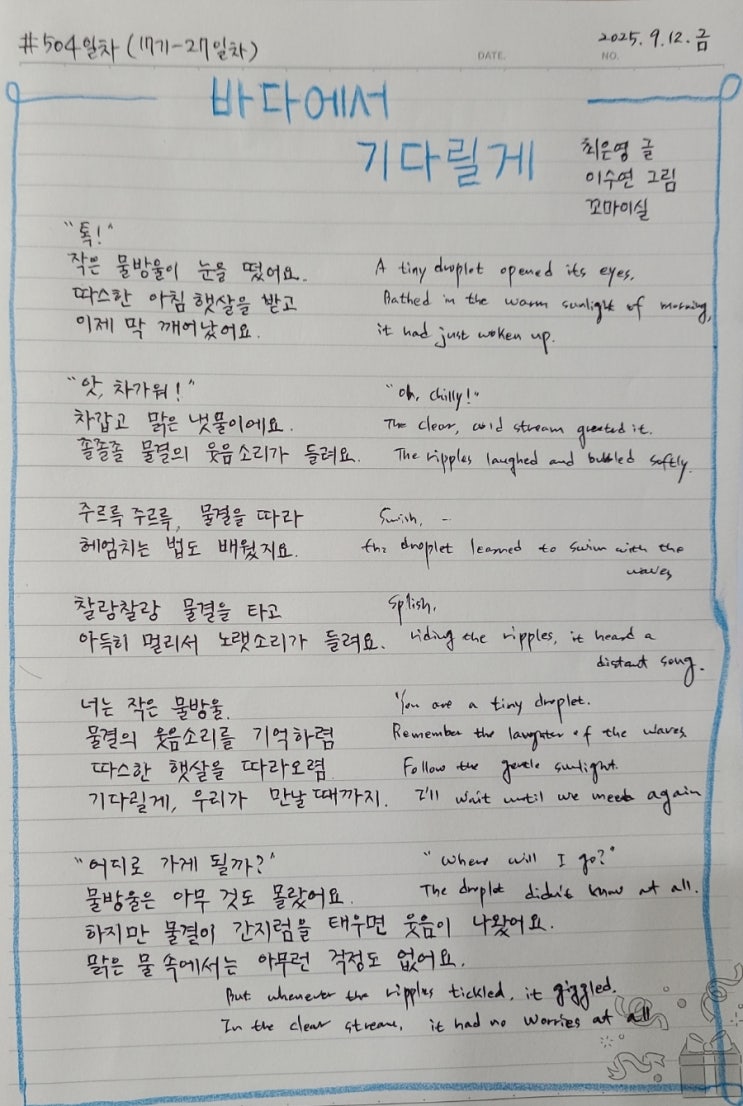 #504일차 (17기-27일차)
2025. 9. 12. 금
DATE.
NO.
바다에서
기다릴게
최은영 글
이수연 그림
꼬마이실
"톡!"
작은 물방울이 눈을 떴어요.
A tiny droplet opened its eyes.
따스한 아침 햇살을 받고
Bathed in the warm sunlight of morning,
이제 막 깨어났어요.
it had just woken up.
"앗, 차가워!"
"Oh, chilly!"
차갑고 맑은 냇물이에요.
The clear, cold stream greeted it.
졸졸졸 물결의 웃음소리가 들려요.
The ripples laughed and bubbled softly.
주르륵 주르륵, 물결을 따라
Swish, -
헤엄치는 법도 배웠지요.
the droplet learned to swim with the
waves
찰랑찰랑 물결을 타고
Splish,
아득히 멀리서 노랫소리가 들려요.
riding the ripples, it heard a
distant song.
너는 작은 물방울.
"You are a tiny droplet.
물결의 웃음소리를 기억하렴
Remember the laughter of the waves
따스한 햇살을 따라오렴
Follow the gentle sunlight.
기다릴게, 우리가 만날 때까지.
I'll wait until we meet again
"어디로 가게 될까?"
"Where will I go?"
물방울은 아무 것도 몰랐어요.
The droplet didn't know at all.
하지만 물결이 간지럼을 태우면 웃음이 나왔어요.
맑은 물 속에서는 아무런 걱정도 없어요.
But whenever the ripples tickled, it giggled.
In the clear stream, it had no worries at all